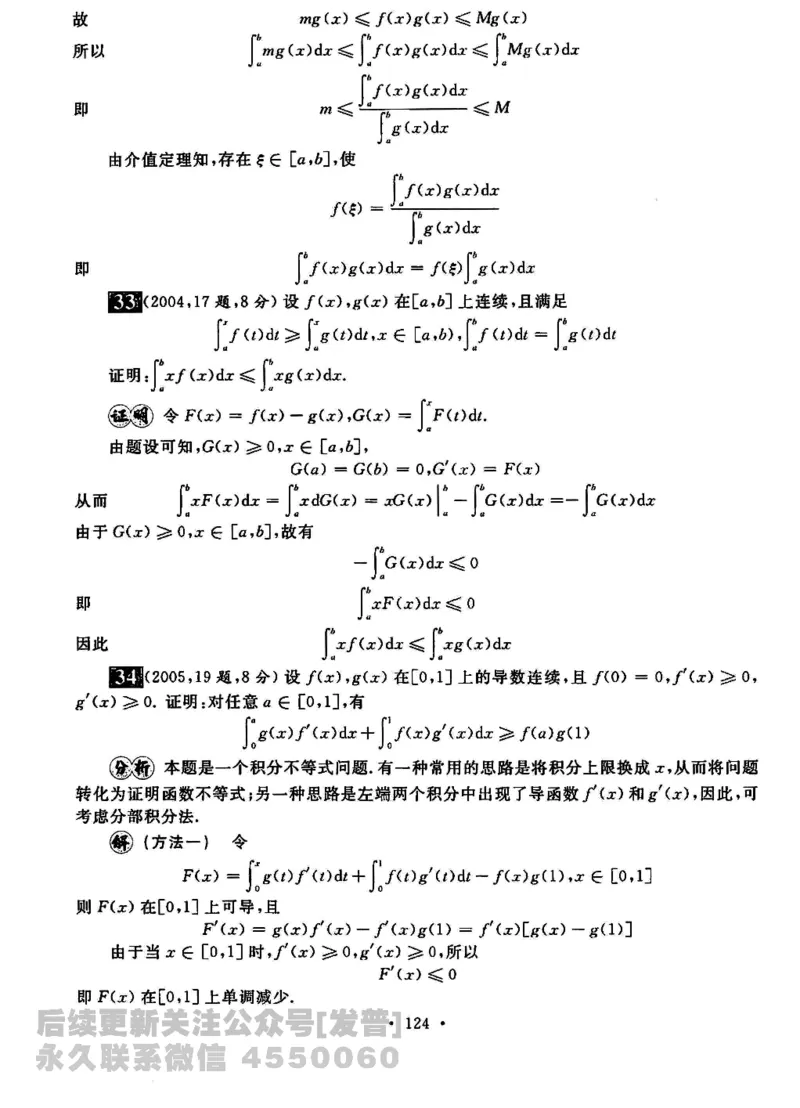 故 mg(x) ⩽ f(x)g(x) ⩽ Mg(x)
所以 ∫_a^b mg(x)dx ⩽ ∫_a^b f(x)g(x)dx ⩽ ∫_a^b Mg(x)dx
即 m ⩽ \frac{∫_a^b f(x)g(x)dx}{∫_a^b g(x)dx} ⩽ M
由介值定理知,存在 ξ ∈ [a,b],使
f(ξ) = \frac{∫_a^b f(x)g(x)dx}{∫_a^b g(x)dx}
即 ∫_a^b f(x)g(x)dx = f(ξ)∫_a^b g(x)dx
33 (2004,17 题,8 分) 设 f(x),g(x) 在[a,b] 上连续,且满足
∫_a^x f(t)dt ⩾ ∫_a^x g(t)dt,x ∈ [a,b),∫_a^b f(t)dt = ∫_a^b g(t)dt
证明:∫_a^b xf(x)dx ⩽ ∫_a^b xg(x)dx.
证明 令 F(x) = f(x) − g(x),G(x) = ∫_a^x F(t)dt.
由题设可知,G(x) ⩾ 0,x ∈ [a,b],
G(a) = G(b) = 0,G′(x) = F(x)
从而 ∫_a^b xF(x)dx = ∫_a^b xdG(x) = xG(x)|_a^b − ∫_a^b G(x)dx = −∫_a^b G(x)dx
由于 G(x) ⩾ 0,x ∈ [a,b],故有
−∫_a^b G(x)dx ⩽ 0
即 ∫_a^b xF(x)dx ⩽ 0
因此 ∫_a^b xf(x)dx ⩽ ∫_a^b xg(x)dx
34 (2005,19 题,8 分) 设 f(x),g(x) 在[0,1] 上的导数连续,且 f(0) = 0,f′(x) ⩾ 0,
g′(x) ⩾ 0. 证明:对任意 a ∈ [0,1],有
∫_0^a g(x)f′(x)dx + ∫_0^1 f(x)g′(x)dx ⩾ f(a)g(1)
分析 本题是一个积分不等式问题.有一种常用的思路是将积分上限换成 x,从而将问题
转化为证明函数不等式;另一种思路是左端两个积分中出现了导函数 f′(x) 和 g′(x),因此,可
考虑分部积分法.
解 (方法一) 令
F(x) = ∫_0^x g(t)f′(t)dt + ∫_0^1 f(t)g′(t)dt − f(x)g(1),x ∈ [0,1]
则 F(x) 在[0,1] 上可导,且
F′(x) = g(x)f′(x) − f′(x)g(1) = f′(x)[g(x) − g(1)]
由于当 x ∈ [0,1] 时,f′(x) ⩾ 0,g′(x) ⩾ 0,所以
F′(x) ⩽ 0
即 F(x) 在[0,1] 上单调减少.
后续更新关注公众号[发普]
· 124 ·
永久联系微信 4550060